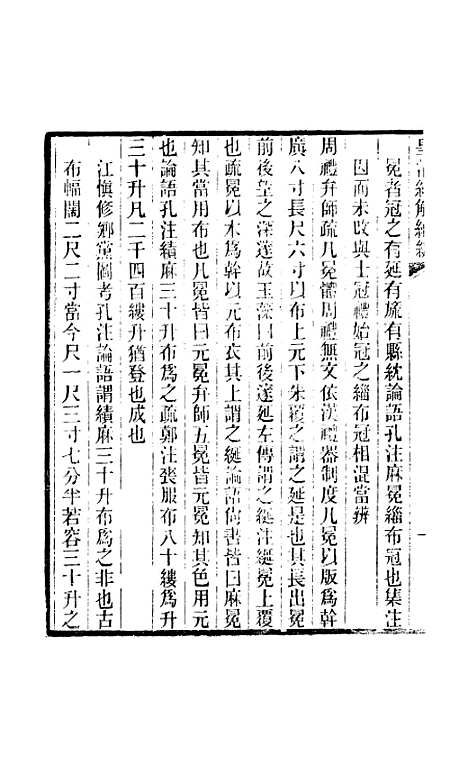 皇清經解續編
冕者冠之有延有旒有縣紞論語孔注麻冕緇布冠也集注
因而未改與士冠禮始冠之緇布冠相混當辨
周禮弁師疏凡冕體周禮無文依漢禮器制度凡冕以版爲幹
廣八寸長尺六寸以布上元下朱覆之謂之延是也其長出冕
前後望之深邃故玉藻曰前後邃延左傳謂之綖注綖冕上覆
也疏冕以木爲幹以元布衣其上謂之綖論語尙書皆曰麻冕
知其當用布也凡冕皆曰元冕弁師五冕皆元冕知其色用元
也論語孔注績麻三十升布爲之疏鄭注喪服布八十縷爲升
三十升凡二千四百縷升猶登也成也
江愼修鄉黨圖考孔注論語謂績麻三十升布爲之非也古
布幅闊二尺二寸當今尺一尺三寸七分半若容三十升之